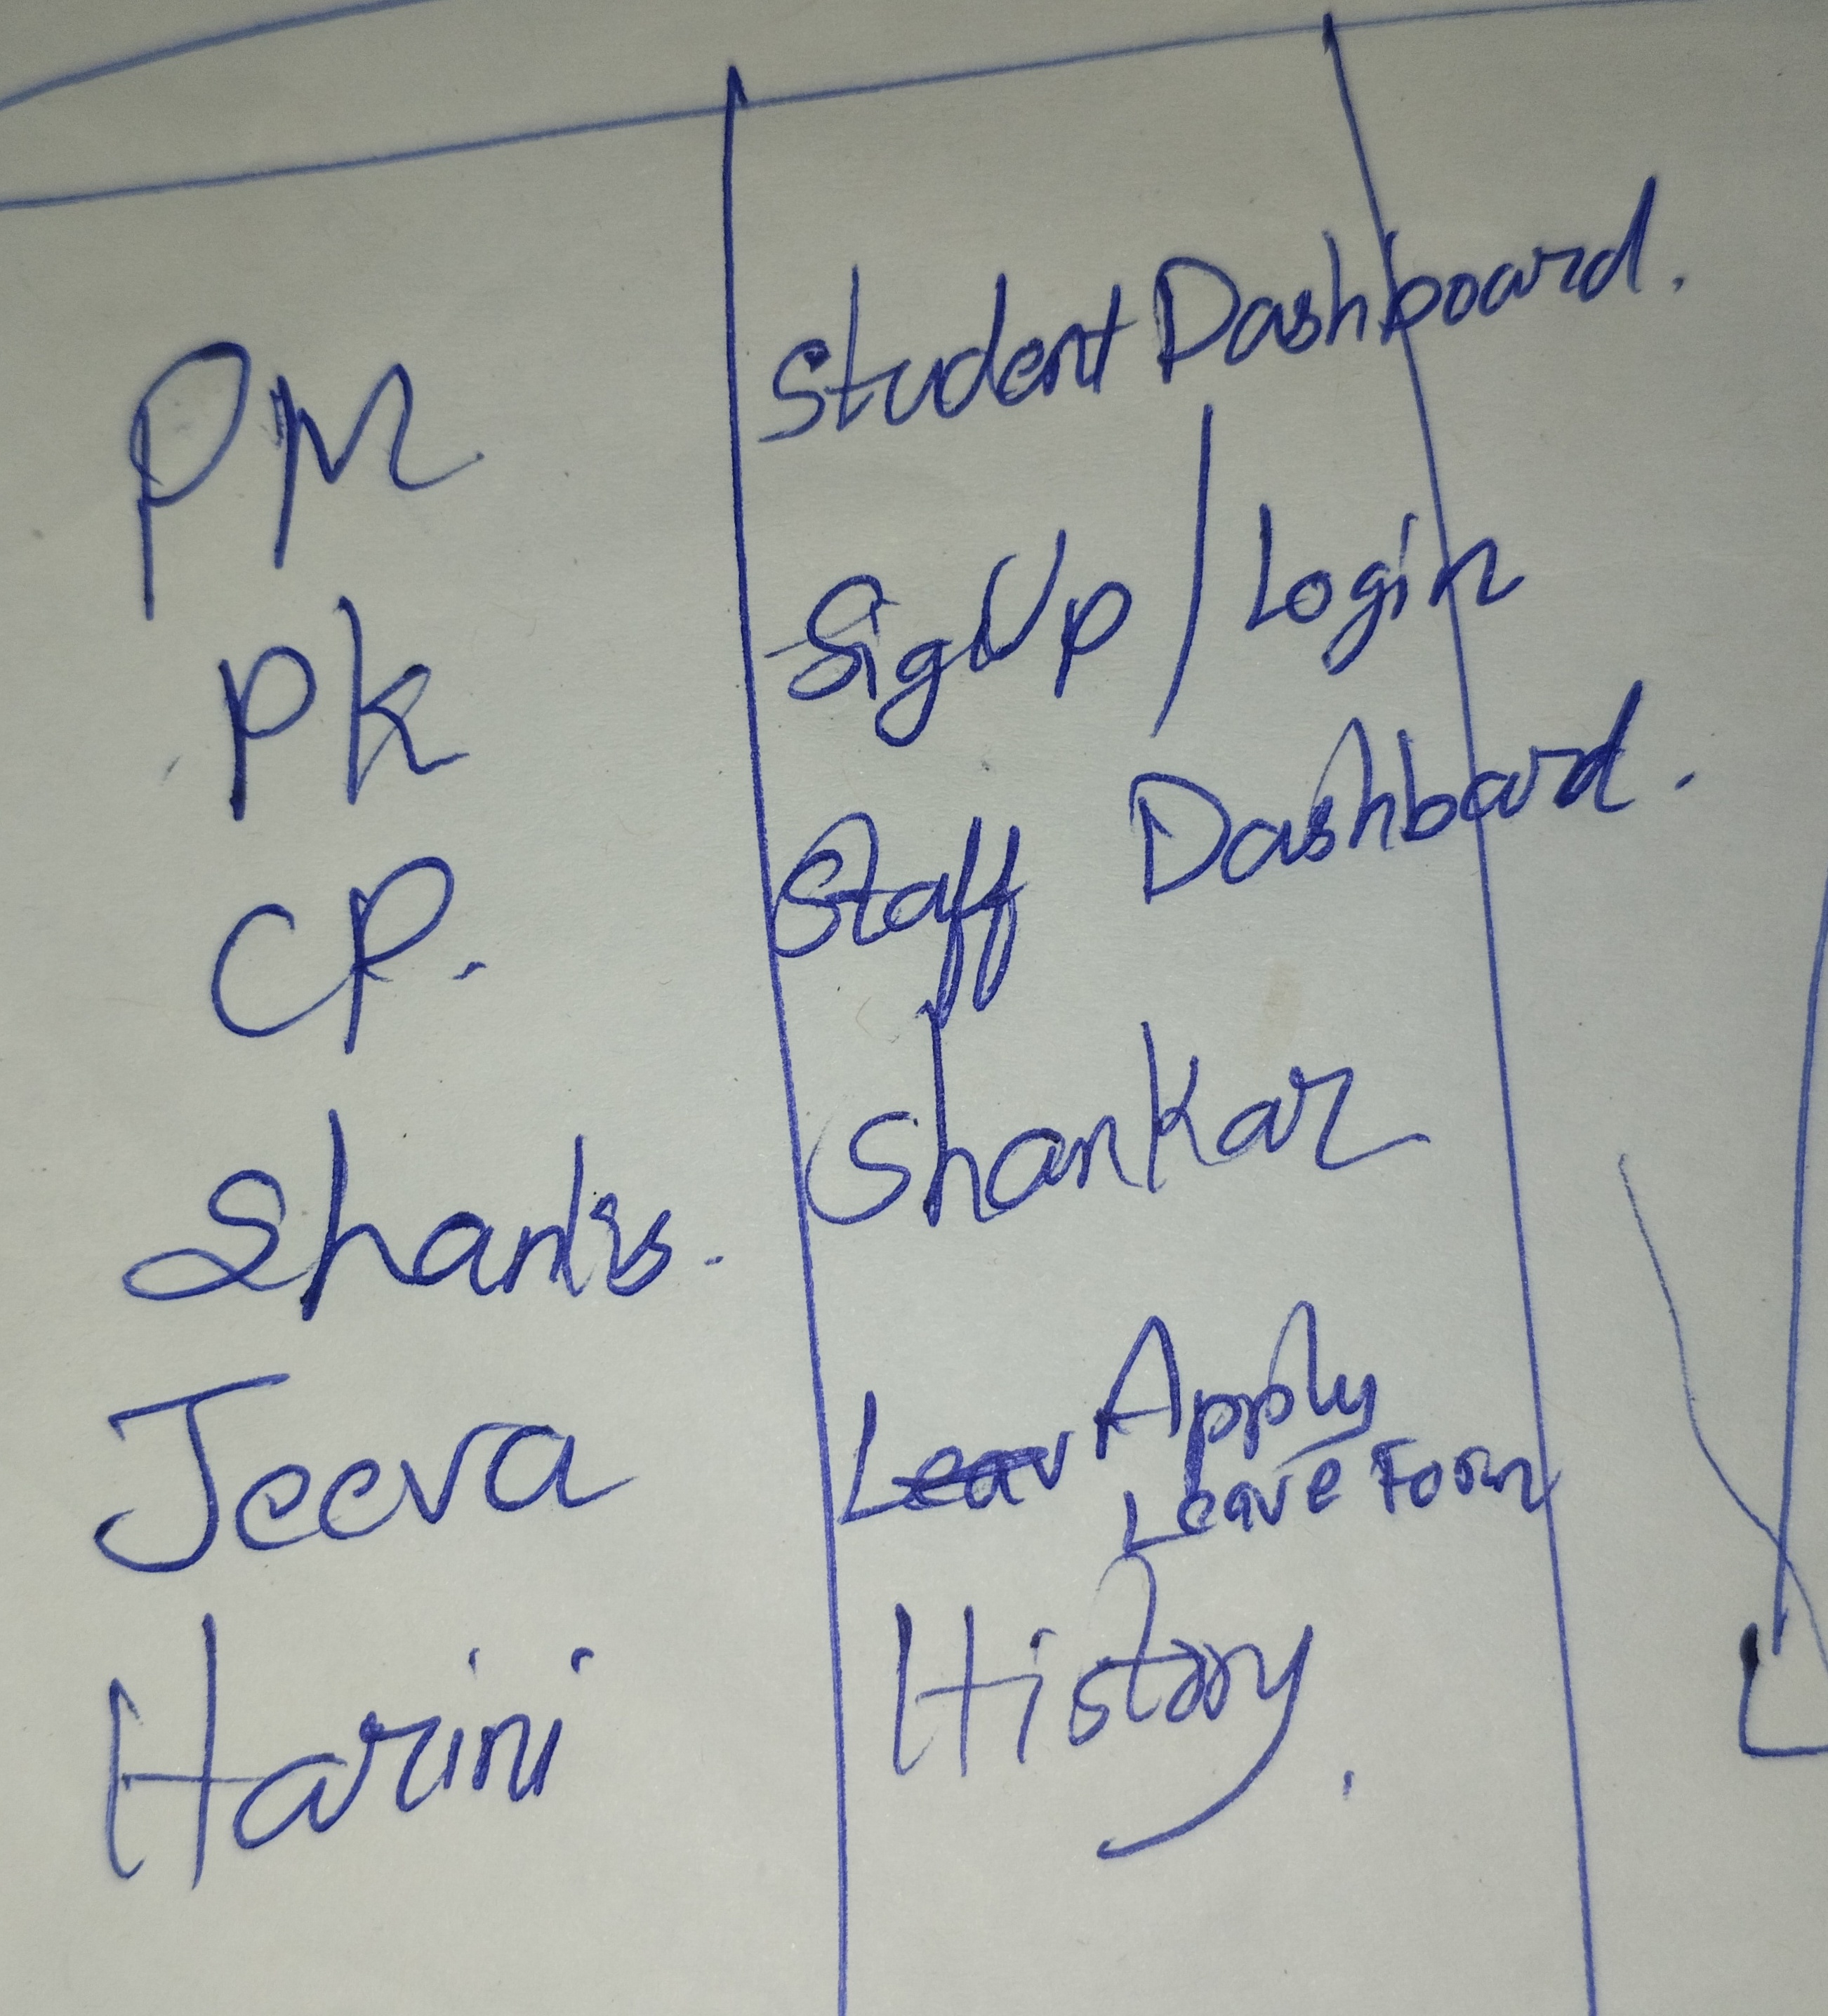 PM Student Dashboard.
PK SigUp / Login
CP. Staff Dashboard.
Shanks. Shankar
Jeeva Leav Apply
Leave Form
Harini History.